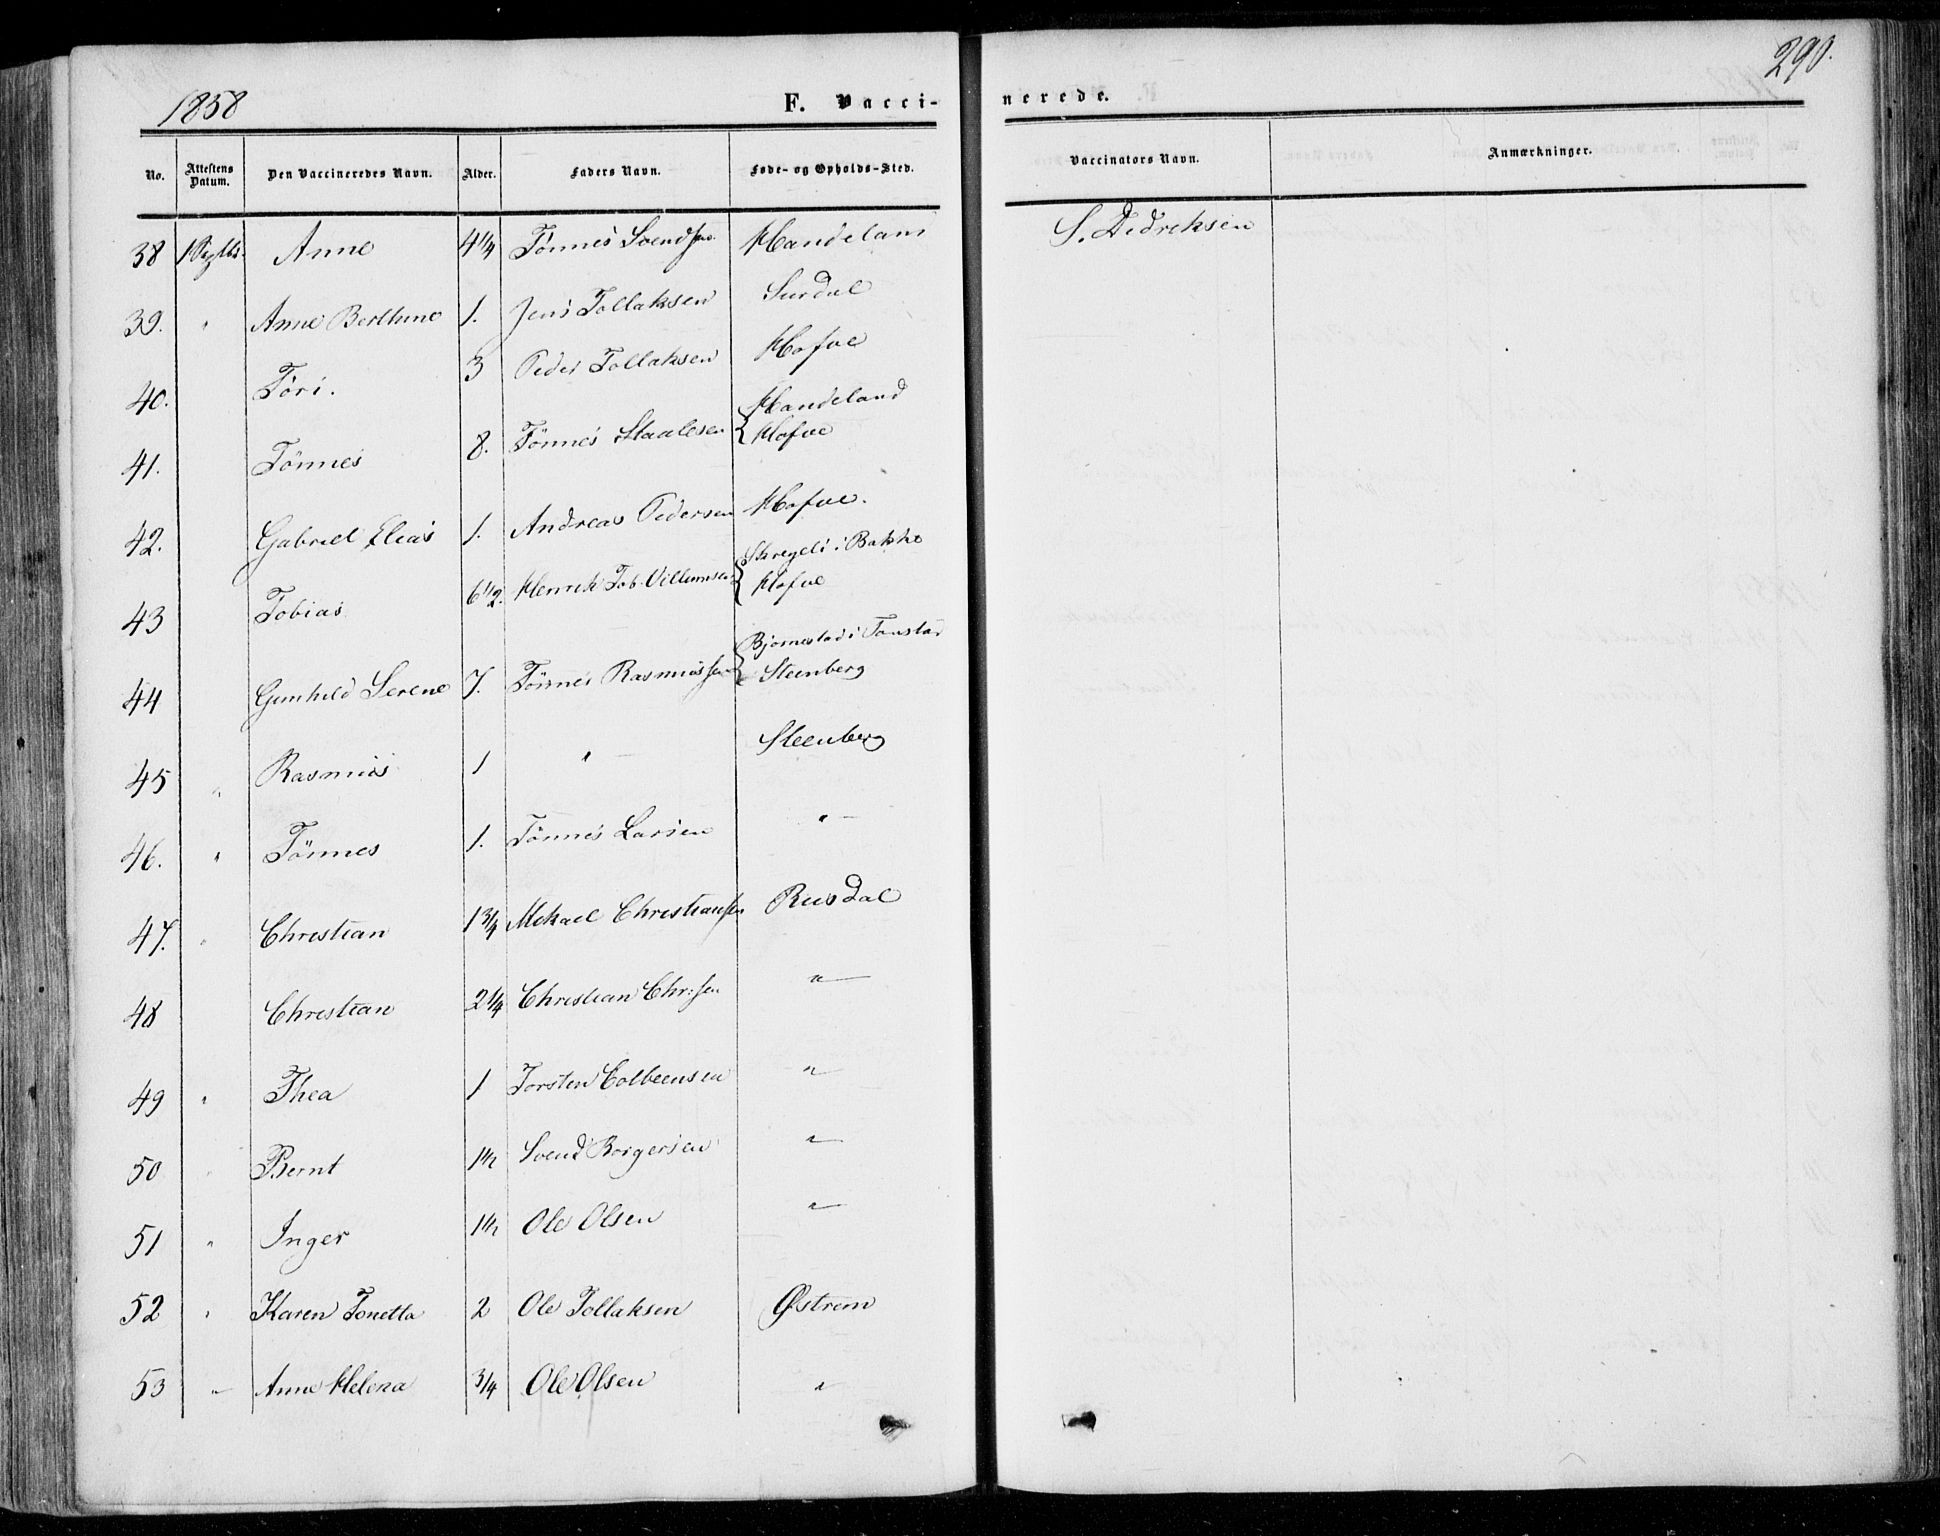 1858 F. Vacci- nerede. 290.
No. Attestens Datum. Den Vaccineredes Navn. Alder. Faders Navn. Føde- og Opholds-Sted. Vaccinators Navn. Anmærkninger.
38 1 Anne 4 1/4 Tønnes Svendsen Handeland S. Didreksen
39. " Anne Berthine 1. Jens Tollaksen Surdal
40. Töri. 3 Peder Tollaksen Hofve
41. Tönnes 8. Tönnes Staalesen { Handeland
Hofve
42. Gabriel Elias 1. Andreas Pedersen Hofve.
43 Tobias 6 1/2. Henrik Tob. Villumsen { Skregeli i Bakke
Hofve
44 Gunhild Serene 7. Tönnes Rasmussen { Bjornestad i Tonstad
Steenberg
45 " Rasmus 1 " Steenberg
46. " Tönnes 1. Tönnes Larsen " -
47. " Christian 1 3/4 Mikael Christiansen Rusdal
48 Christian 2 1/4 Christian Chr:sen "
49 " Thea 1 Torsten Colbeensen "
50 " Bernt 1 1/2 Svend Borgersen "
51 " Inger 1 1/2 Ole Olsen "
52 " Karen Tonetta 2 Ole Tollaksen Østrem
53 " Anne Helena 3/4 Ole Olsen "